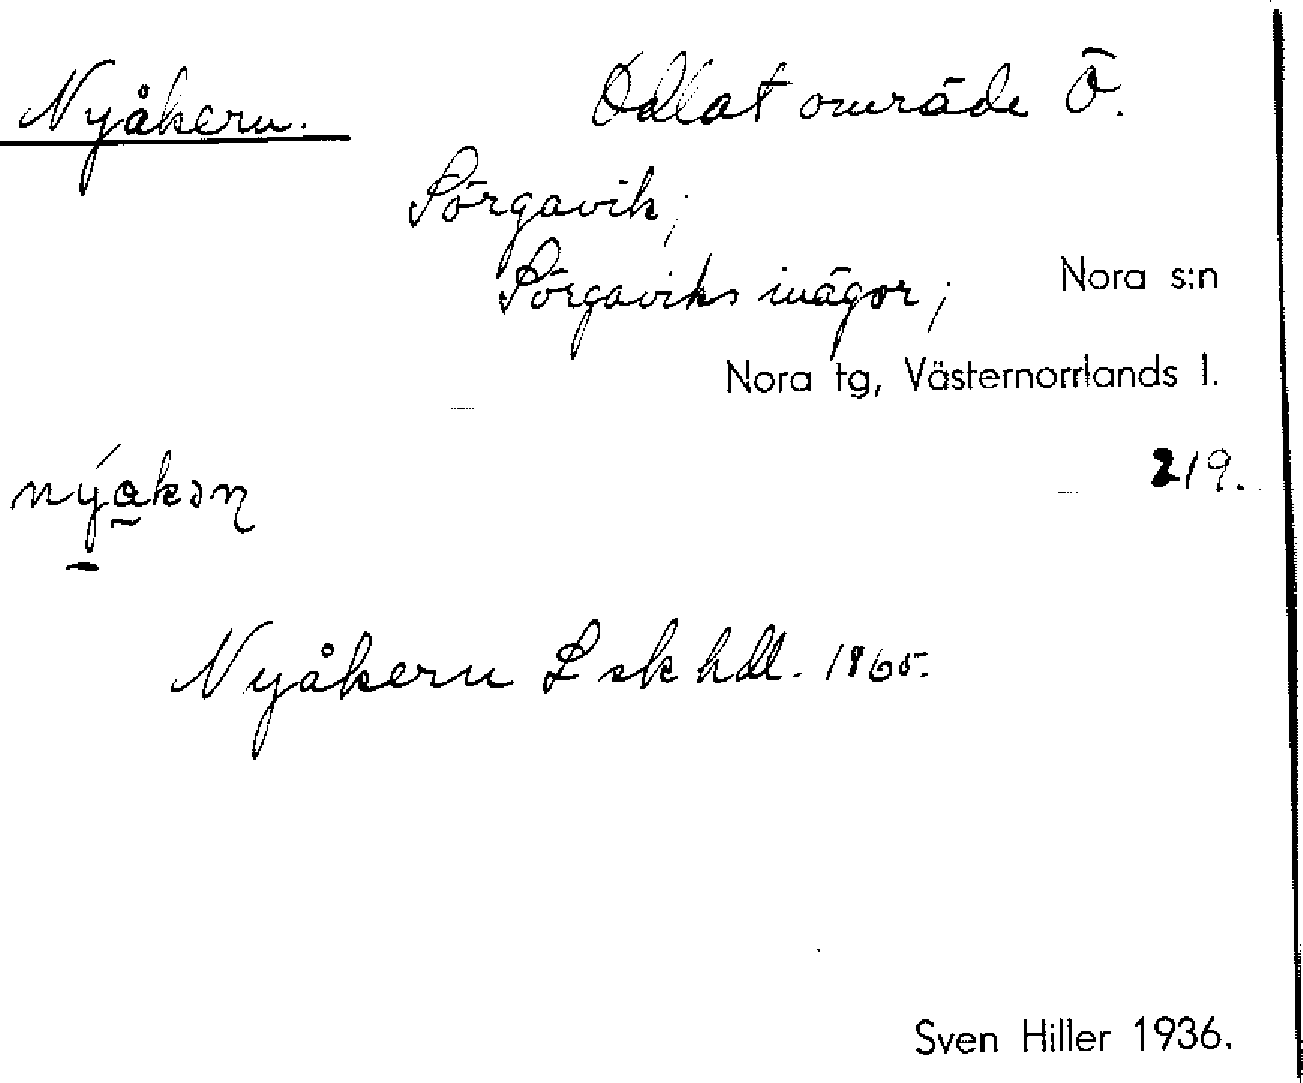 Nyåkern. Odlat område Ö.
Sörgavik;
Sörgaviks inägor; Nora s:n
Nora tg, Västernorrlands l.
219.
nýakən
Nyåkern L sk hdl. 1865.
Sven Hiller 1936.